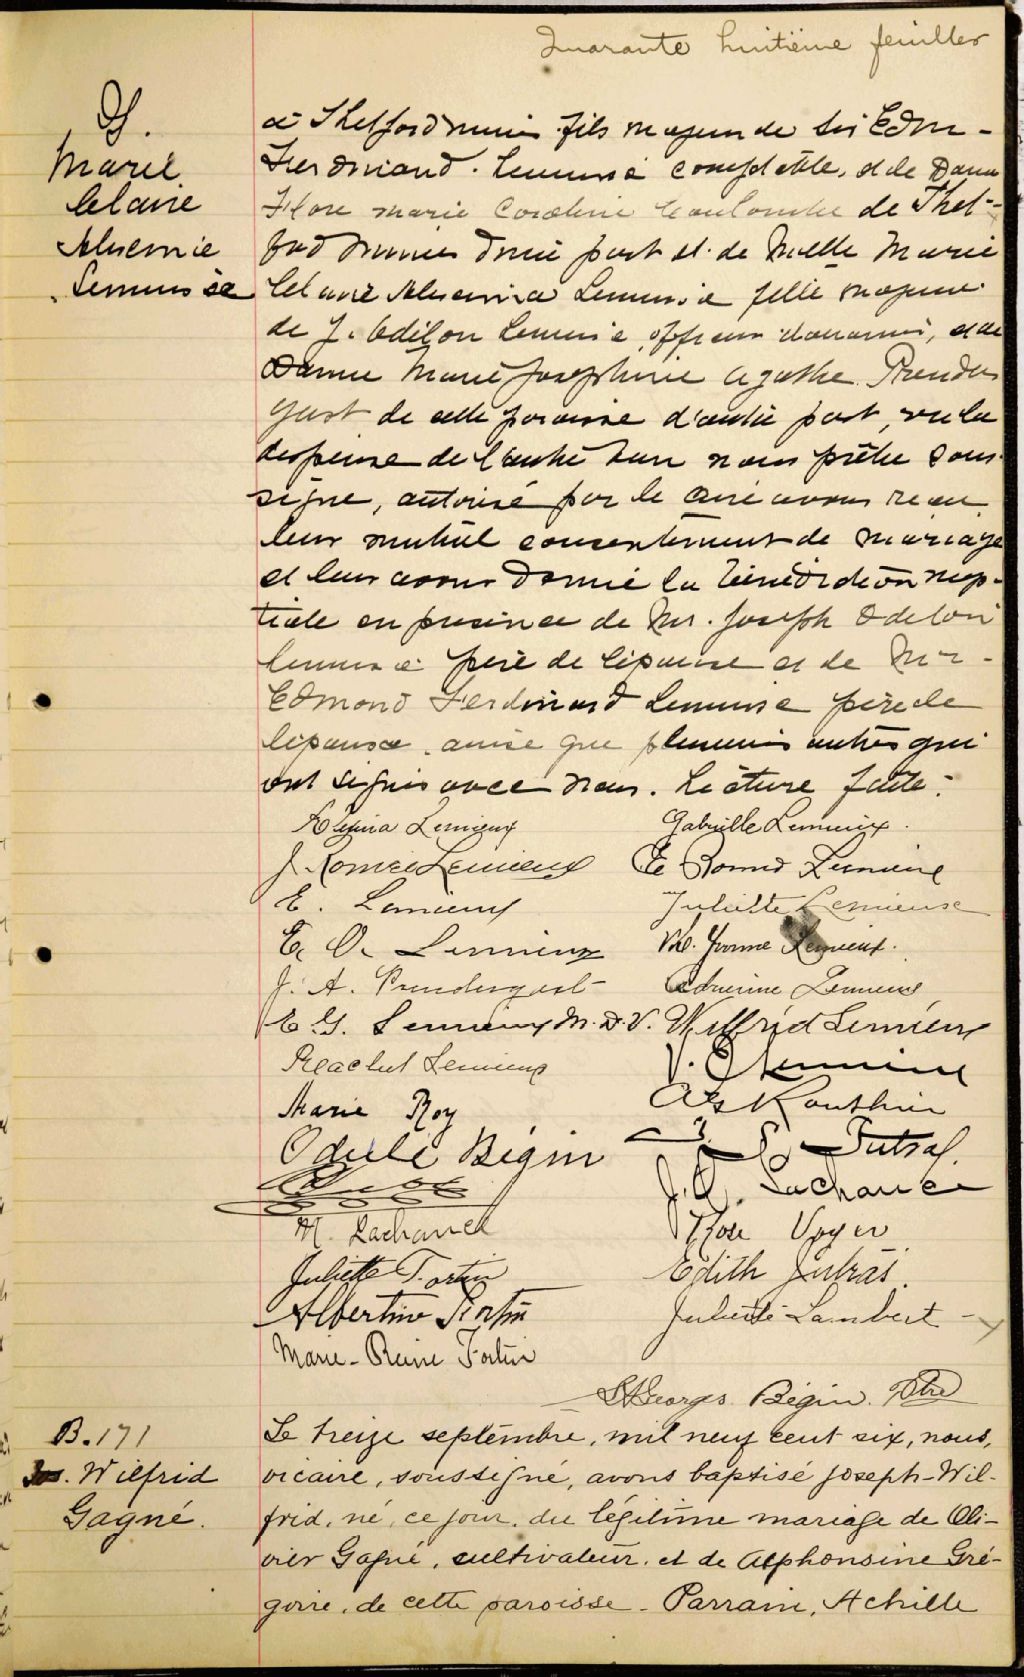 Quarante huitième feuillet
&.
Marie
Claire
Lemieux
à Thetford mines fils majeur de Edm-
Ferdinand Lemieux comptable, et de Dame
Flore Marie Caroline Coulombe de Thet-
ford mines d'une part et de Melle Marie
Claire Lemieux fille majeure
de J. Odilon Lemieux, officier douanier, et de
Dame Marie Josephine Agathe Prender
gast de cette paroisse d'autre part, vu la
dispense de ban nous prêtre sous-
signé, autorisé par le curé avons reçu
leur mutuel consentement de mariage
et leur avons donné la bénédiction nup-
tiale en présence de Mr. Joseph Odilon
Lemieux père de l'épouse et de Mr-
Edmond Ferdinand Lemieux père de
l'épouse, ainsi que plusieurs autres qui
ont signés avec nous. Lecture faite.
Alexina Lemieux Gabrielle Lemieux.
J. Romeo Lemieux Lemieux
E. Lemieux Juliette Lemieux
E. O. Lemieux Yvonne Lemieux.
J. A. Prendergast Adrienne Lemieux
E. G. Lemieux M.D.V. Wilfrid Lemieux
Lemieux V. Lemieux
Marie Roy Routhier
Odule Bégin Jutras.
J. A. Lachance
M. Lachance Rose Voyer
Juliette Fortin Edith Jutras.
Albertine Fortin Juliette Lambert
Marie-Reine Fortin
Georges Bégin. Ptre
B. 171
Jos. Wilfrid
Gagné.
Le treize septembre, mil neuf cent six, nous,
vicaire, soussigné, avons baptisé Joseph-Wil-
frid, né, ce jour, du légitime mariage de Oli-
vier Gagné, cultivateur, et de Alphonsine Gré-
goire, de cette paroisse. Parrain, Achille